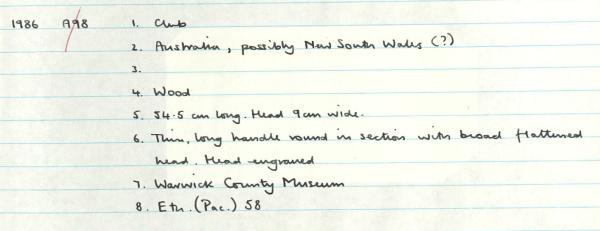 1986 A98 1. Club
2. Australia, possibly New South Wales (?)
3.
4. Wood
5. 54.5 cm long. Head 9cm wide.
6. Thin, long handle round in section with broad flattened
head. Head engraved
7. Warwick County Museum
8. Eth. (Pac.) 58